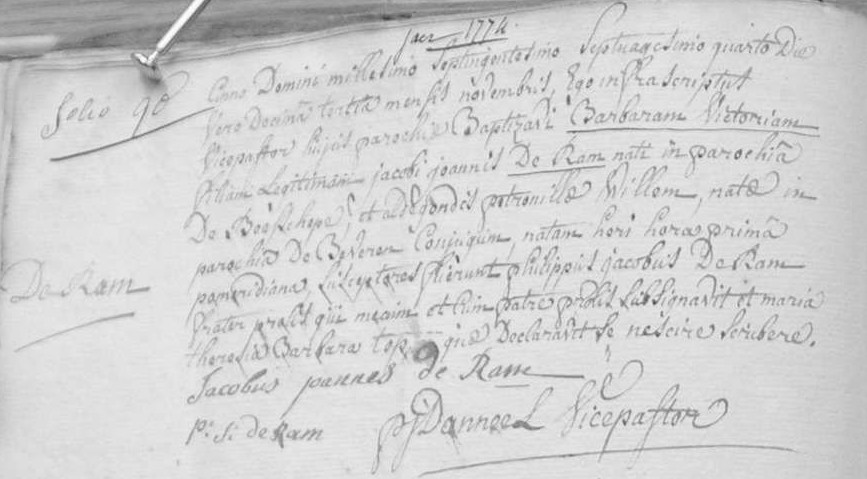 jaer 1774.
folio 9e Anno Domini millesimo Septingentesimo Septuagesimo quarto Die
Vero Decima tertia mensis novembris, Ego infrascriptus
Vicepastor hujus parochiæ Baptizavi Barbaram Victoriam
filiam Legitimam jacobi joannis De Ram nati in parochiâ
De Boesschepe, et aldegondis petronillæ Willem, natæ in
parochiâ De Beveren Conjugum, natam heri hora primâ
De Ram pomeridiana, Susceptores fuerunt philippus jacobus De Ram
frater prolis qui mecum et Cum patre prolis subsignavit et maria
theresia Barbara top quæ Declaravit se nescire scribere.
Jacobus joannes de Ram
p: j: de Ram pj Danneel Vicepastor